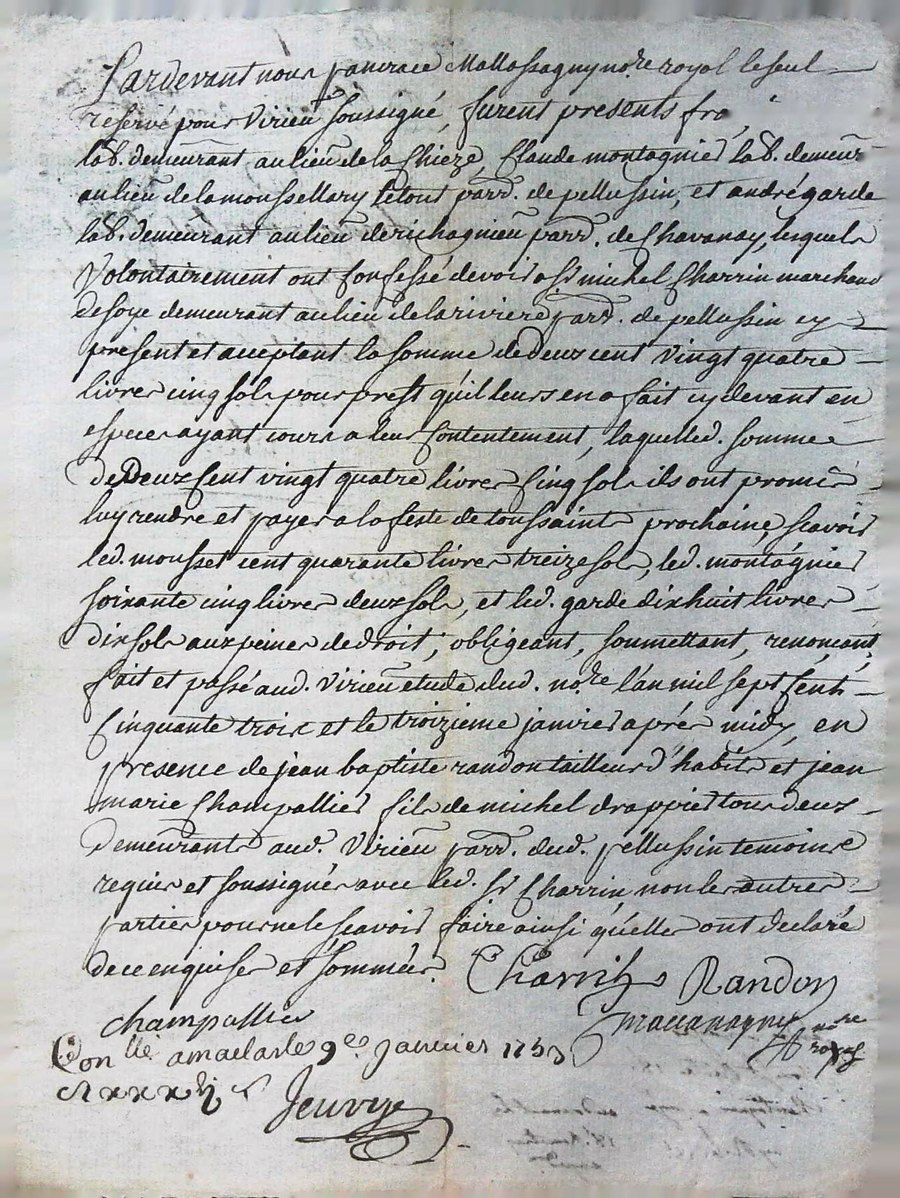 Pardevant nous pancrace Mallassagny no.re royal le seul
reservé pour Virieu soussigné, furent presents fra
lab. demeurant au lieu de la Chieze, Claude montagnier lab. demeur
au lieu de la mousse letout parr. de pellussin, et andré garde
lab. demeurant au lieu de richagnieu parr. de Chavanay, lesquels
Volontairement ont Confessé devoir a Sr michel Charrin marchand
de soye demeurant au lieu de la riviere parr. de pellussin cy
present et acceptant la somme de deux cent vingt quatre
livres cinq sols pour prest qu'il leurs en a fait cy devant en
especes ayant cours a leur Contentement, laquelle d. somme
de Deux Cent vingt quatre livres Cinq sols ils ont promis
luy rendre et payer a la feste de toussaints prochaine, scavoir
led. mousset cent quarante livres treize sols, led. montagnier
soixante cinq livres deux sols, et led. garde dix huit livres
dix sols aux peines de droit, obligeant, soumettant, renoncant,
fait et passé aud. Virieu etude dud. no.re l'an mil sept Cent
Cinquante trois et le troizieme janvier aprés midy, en
presence de jean baptiste randon tailleur d'habits et jean
marie Champallier fils de michel drappier tous deux
demeurants aud. Virieu parr. dud. pellussin temoins
requis et soussignés avec led. Sr Charrin, non les autres
parties pour ne le scavoir faire ainsi qu'elles ont declaré
de ce enquises et sommées.
Charrin Randon
champallier
no.re
royal
Con.llé a maclas le 9e Janvier 1753